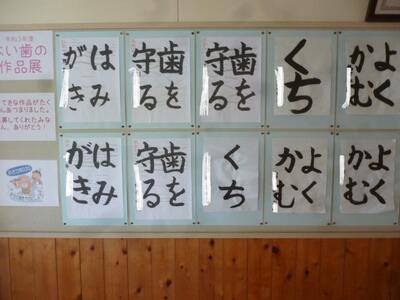 令和3年度
よい歯の
作品展
てきな作品がたく
んあつまりました。
募してくれたみな
ん、ありがとう！
はみ
がき
歯を
守る
歯を
守る
くち
よく
かむ
はみ
がき
歯を
守る
くち
よく
かむ
よく
かむ